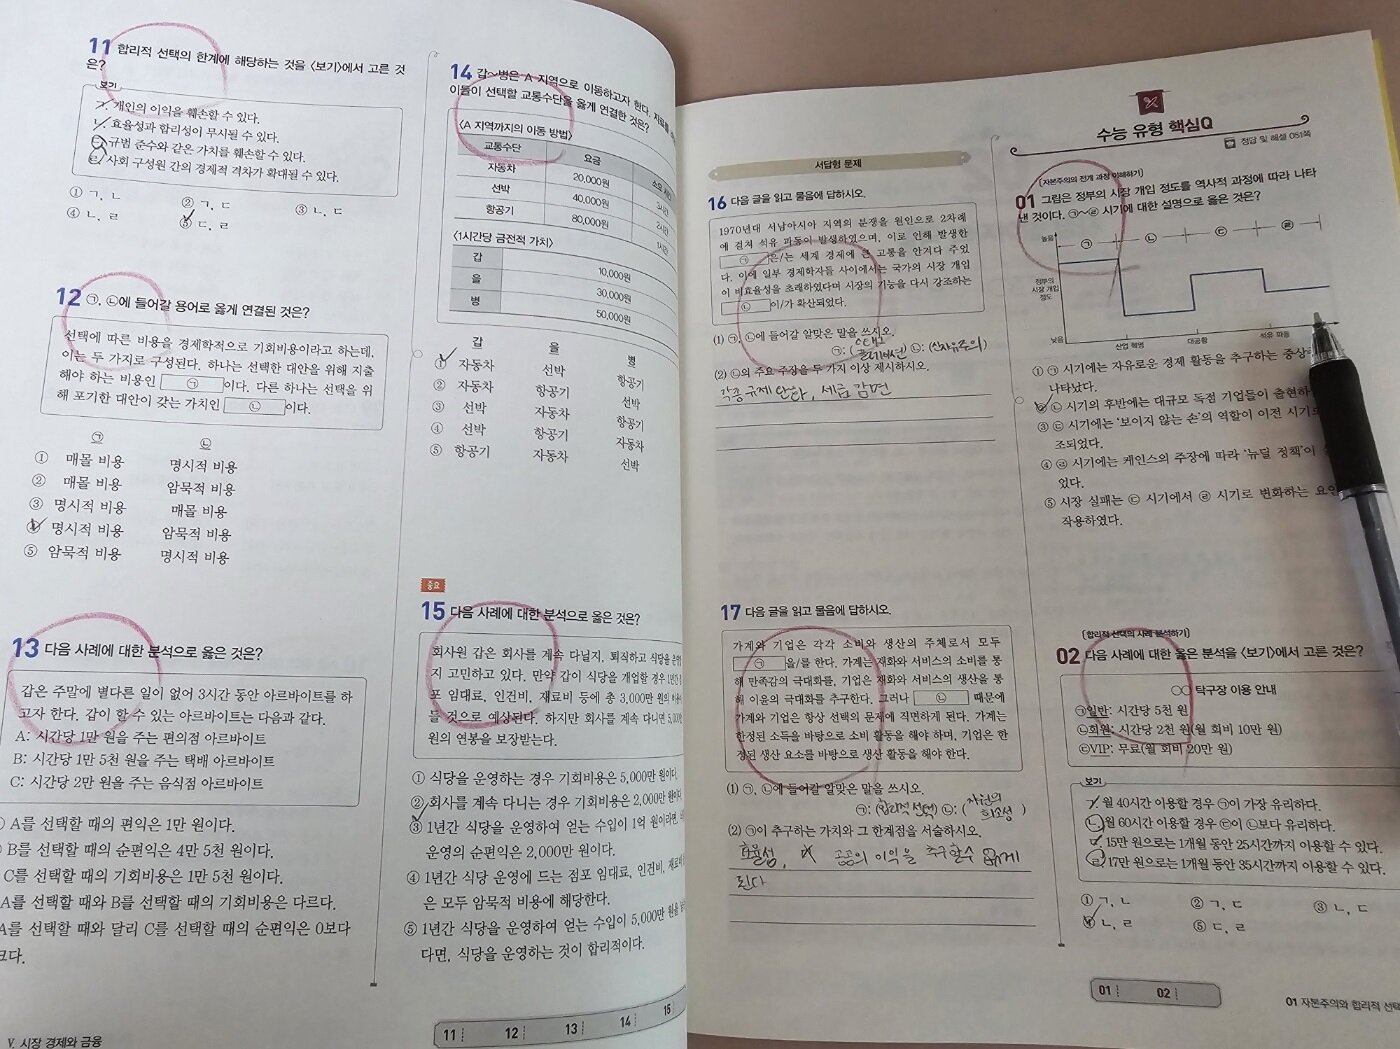 11 합리적 선택의 한계에 해당하는 것을 〈보기〉에서 고른 것
은?
보기
ㄱ. 개인의 이익을 훼손할 수 있다.
ㄴ. 효율성과 합리성이 무시될 수 있다.
ㄷ. 규범 준수와 같은 가치를 훼손할 수 있다.
ㄹ. 사회 구성원 간의 경제적 격차가 확대될 수 있다.
① ㄱ, ㄴ ② ㄱ, ㄷ ③ ㄴ, ㄷ
④ ㄴ, ㄹ ⑤ ㄷ, ㄹ
12 ㉠, ㉡에 들어갈 용어로 옳게 연결된 것은?
선택에 따른 비용을 경제학적으로 기회비용이라고 하는데,
이는 두 가지로 구성된다. 하나는 선택한 대안을 위해 지출
해야 하는 비용인 ㉠ 이다. 다른 하나는 선택을 위
해 포기한 대안이 갖는 가치인 ㉡ 이다.
㉠ ㉡
① 매몰 비용 명시적 비용
② 매몰 비용 암묵적 비용
③ 명시적 비용 매몰 비용
④ 명시적 비용 암묵적 비용
⑤ 암묵적 비용 명시적 비용
13 다음 사례에 대한 분석으로 옳은 것은?
갑은 주말에 별다른 일이 없어 3시간 동안 아르바이트를 하
고자 한다. 갑이 할 수 있는 아르바이트는 다음과 같다.
A: 시간당 1만 원을 주는 편의점 아르바이트
B: 시간당 1만 5천 원을 주는 택배 아르바이트
C: 시간당 2만 원을 주는 음식점 아르바이트
A를 선택할 때의 편익은 1만 원이다.
B를 선택할 때의 순편익은 4만 5천 원이다.
C를 선택할 때의 기회비용은 1만 5천 원이다.
A를 선택할 때와 B를 선택할 때의 기회비용은 다르다.
A를 선택할 때와 달리 C를 선택할 때의 순편익은 0보다
크다.
V. 시장 경제와 금융
14 갑~병은 A 지역으로 이동하고자 한다.
이들이 선택할 교통수단을 옳게 연결한 것은?
〈A 지역까지의 이동 방법〉
교통수단 요금
자동차 20,000원
선박 40,000원 2시간
항공기 80,000원 1시간
〈1시간당 금전적 가치〉
갑 10,000원
을 30,000원
병 50,000원
갑 을 병
① 자동차 선박 항공기
② 자동차 항공기 선박
③ 선박 자동차 항공기
④ 선박 항공기 자동차
⑤ 항공기 자동차 선박
중요
15 다음 사례에 대한 분석으로 옳은 것은?
회사원 갑은 회사를 계속 다닐지, 퇴직하고 식당을
지 고민하고 있다. 만약 갑이 식당을 개업할 경우 1년간 점
포 임대료, 인건비, 재료비 등에 총 3,000만 원의
들 것으로 예상된다. 하지만 회사를 계속 다니면 5,000만
원의 연봉을 보장받는다.
① 식당을 운영하는 경우 기회비용은 5,000만 원이다.
② 회사를 계속 다니는 경우 기회비용은 2,000만 원이다.
③ 1년간 식당을 운영하여 얻는 수입이 1억 원이라면,
운영의 순편익은 2,000만 원이다.
④ 1년간 식당 운영에 드는 점포 임대료, 인건비,
은 모두 암묵적 비용에 해당한다.
⑤ 1년간 식당을 운영하여 얻는 수입이 5,000만 원을
다면, 식당을 운영하는 것이 합리적이다.
11 12 13 14 15
서답형 문제
16 다음 글을 읽고 물음에 답하시오.
1970년대 서남아시아 지역의 분쟁을 원인으로 2차례
에 걸쳐 석유 파동이 발생하였으며, 이로 인해 발생한
㉠ 은/는 세계 경제에 큰 고통을 안겨다 주었
다. 이에 일부 경제학자들 사이에서는 국가의 시장 개입
이 비효율성을 초래하였다며 시장의 기능을 다시 강조하는
㉡ 이/가 확산되었다.
(1) ㉠, ㉡에 들어갈 알맞은 말을 쓰시오.
㉠: ( ) ㉡: (신자유주의)
(2) ㉡의 주요 주장을 두 가지 이상 제시하시오.
각종 규제 완화, 세금 감면
17 다음 글을 읽고 물음에 답하시오.
가계와 기업은 각각 소비와 생산의 주체로서 모두
㉠ 을/를 한다. 가계는 재화와 서비스의 소비를 통
해 만족감의 극대화를, 기업은 재화와 서비스의 생산을 통
해 이윤의 극대화를 추구한다. 그러나 ㉡ 때문에
가계와 기업은 항상 선택의 문제에 직면하게 된다. 가계는
한정된 소득을 바탕으로 소비 활동을 해야 하며, 기업은 한
정된 생산 요소를 바탕으로 생산 활동을 해야 한다.
(1) ㉠, ㉡에 들어갈 알맞은 말을 쓰시오.
㉠: (합리적 선택) ㉡: (자원의 희소성)
(2) ㉠이 추구하는 가치와 그 한계점을 서술하시오.
효율성, 공공의 이익을 추구할 수 없게
된다
수능 유형 핵심Q
정답 및 해설 051쪽
[자본주의의 전개 과정 이해하기]
01 그림은 정부의 시장 개입 정도를 역사적 과정에 따라 나타
낸 것이다. ㉠~㉣ 시기에 대한 설명으로 옳은 것은?
높음 ㉠ ㉡ ㉢ ㉣
정부의
시장 개입
정도
낮음 산업 혁명 대공황 석유 파동
① ㉠ 시기에는 자유로운 경제 활동을 추구하는
나타났다.
② ㉡ 시기의 후반에는 대규모 독점 기업들이 출현하
③ ㉢ 시기에는 '보이지 않는 손'의 역할이 이전 시기
조되었다.
④ ㉣ 시기에는 케인스의 주장에 따라 '뉴딜 정책'이
었다.
⑤ 시장 실패는 ㉢ 시기에서 ㉣ 시기로 변화하는 요인
작용하였다.
[합리적 선택의 사례 분석하기]
02 다음 사례에 대한 옳은 분석을 〈보기〉에서 고른 것은?
○○ 탁구장 이용 안내
㉠일반: 시간당 5천 원
㉡회원: 시간당 2천 원(월 회비 10만 원)
㉢VIP: 무료(월 회비 20만 원)
보기
ㄱ. 월 40시간 이용할 경우 ㉠이 가장 유리하다.
ㄴ. 월 60시간 이용할 경우 ㉢이 ㉡보다 유리하다.
ㄷ. 15만 원으로는 1개월 동안 25시간까지 이용할 수 있다.
ㄹ. 17만 원으로는 1개월 동안 35시간까지 이용할 수 있다.
① ㄱ, ㄴ ② ㄱ, ㄷ ③ ㄴ, ㄷ
④ ㄴ, ㄹ ⑤ ㄷ, ㄹ
01 02
01 자본주의와 합리적 선택